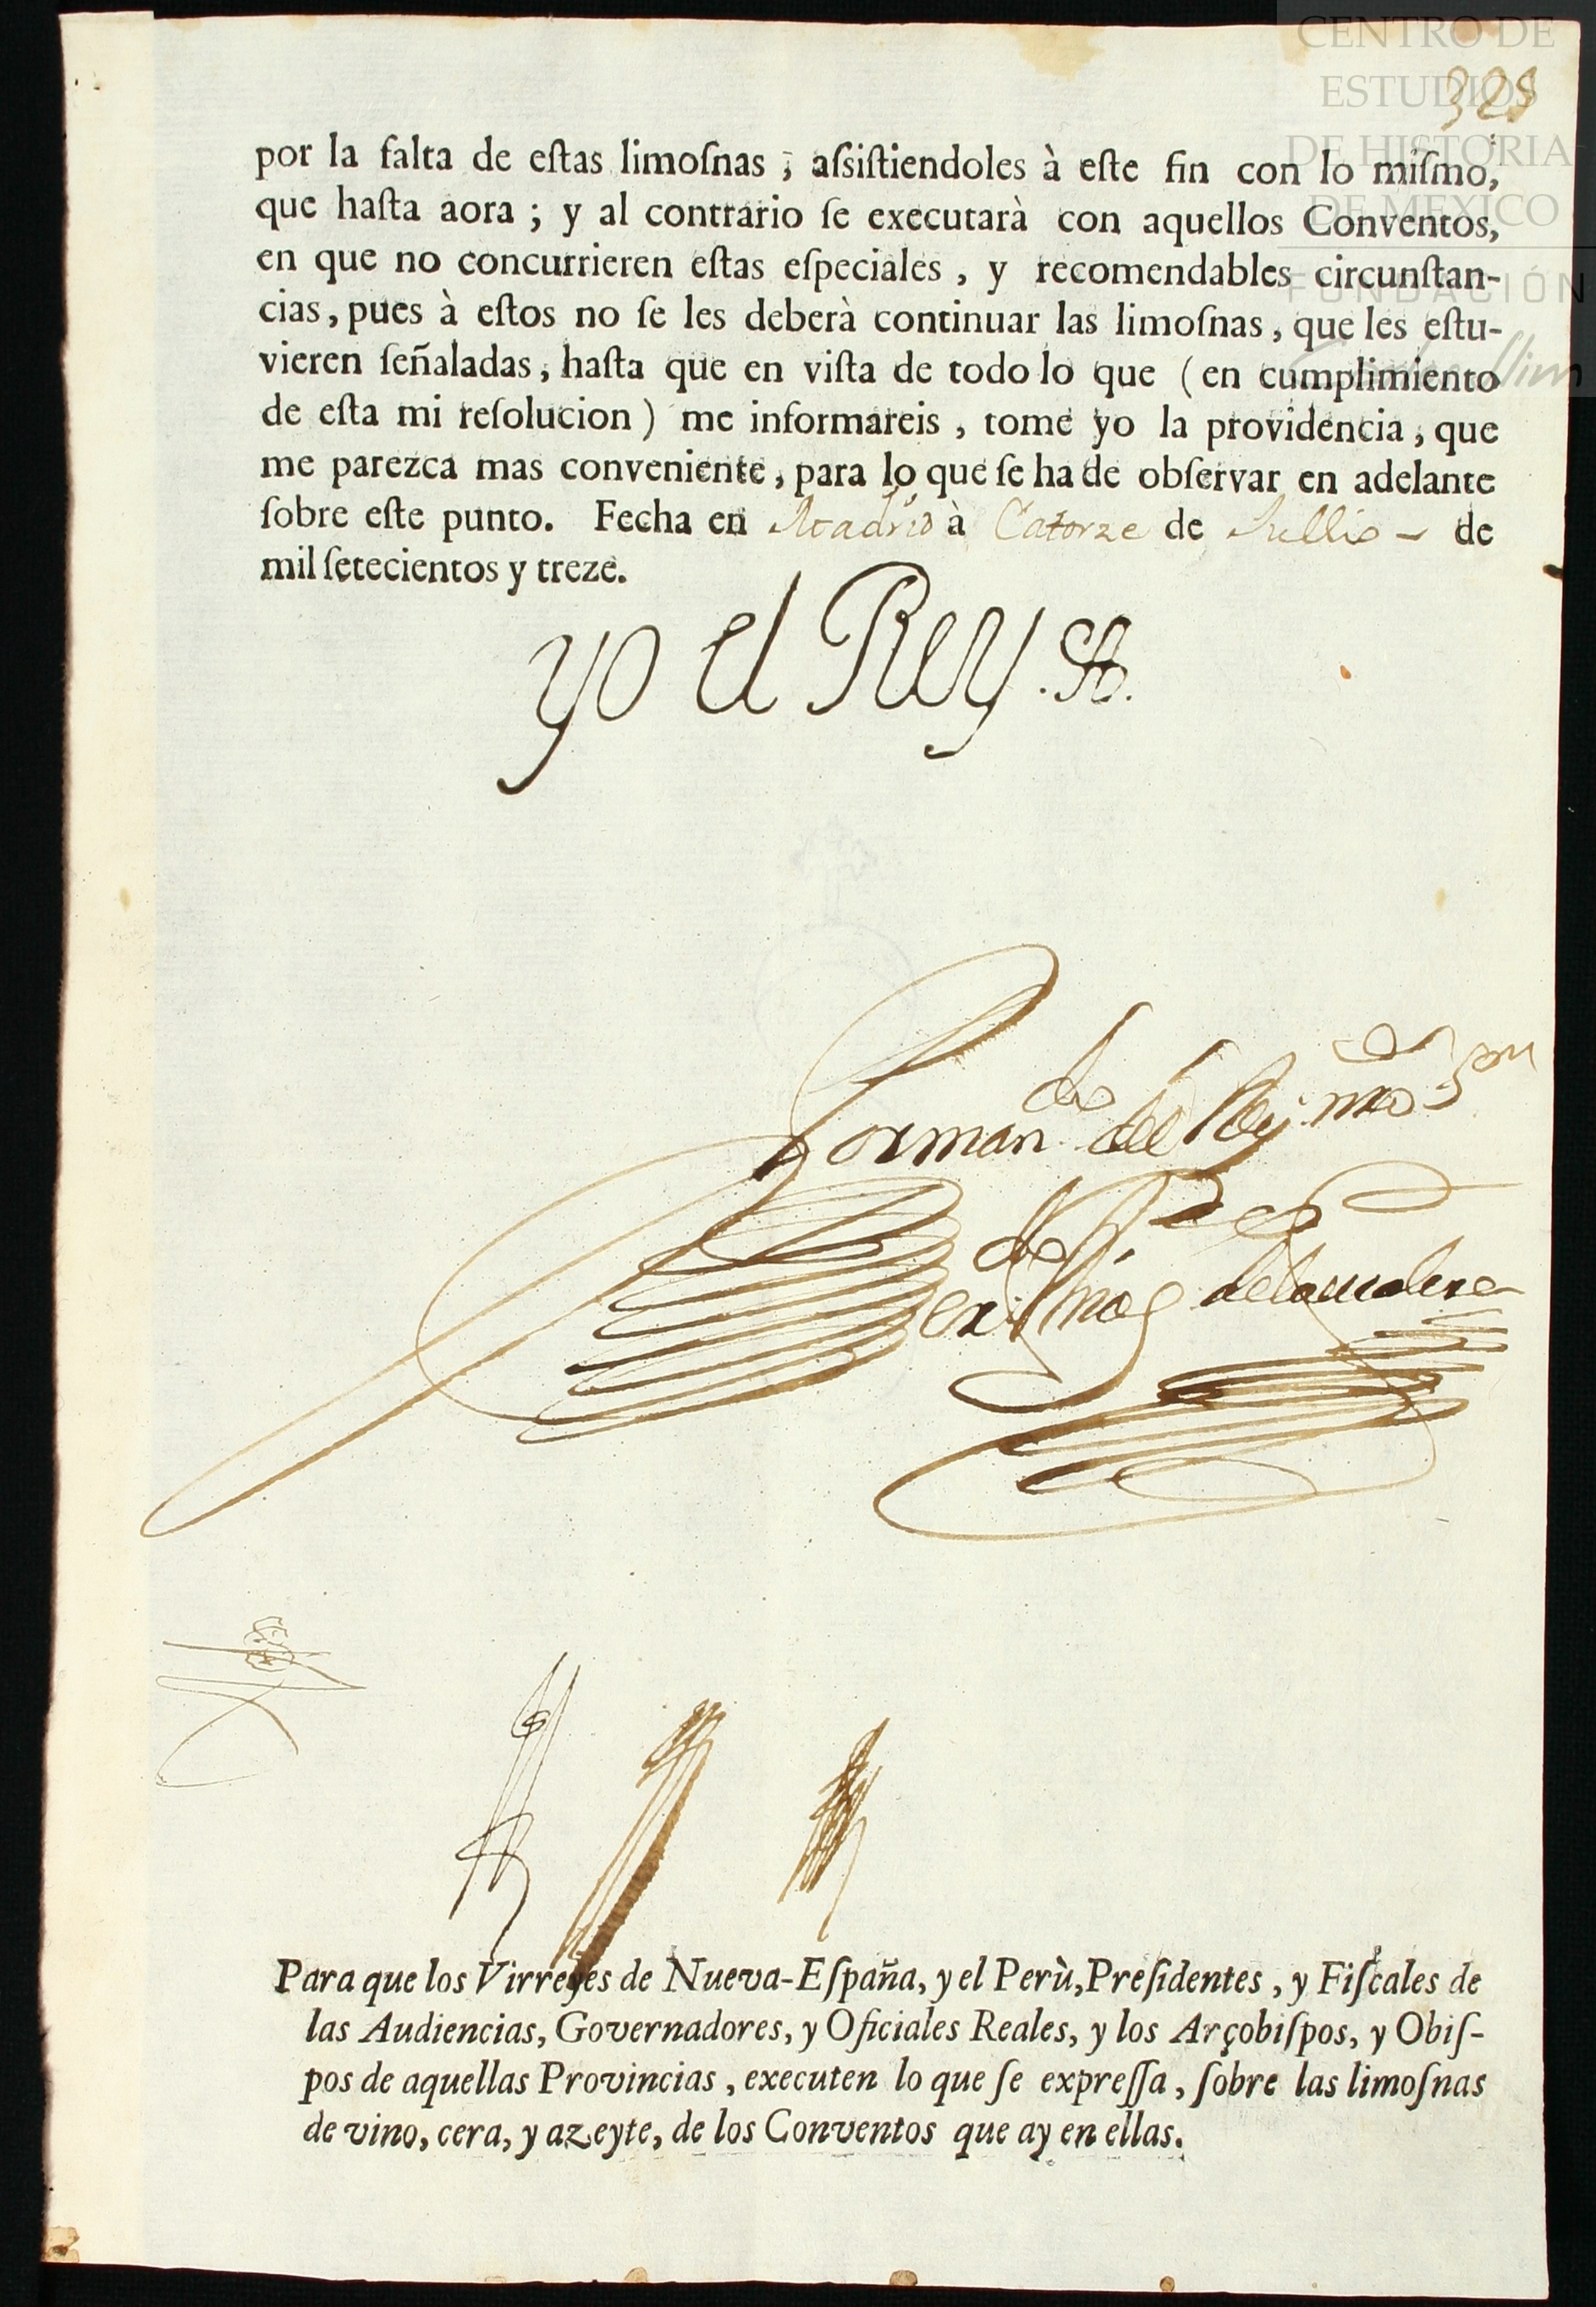 CENTRO DE
ESTUDIOS
DE HISTORIA
DE MEXICO
FUNDACIÓN
por la falta de eſtas limoſnas ; aſsiſtiendoles à eſte fin con lo miſmo,
que haſta aora ; y al contrario ſe executarà con aquellos Conventos,
en que no concurrieren eſtas eſpeciales , y recomendables circunſtan-
cias, pues à eſtos no ſe les deberà continuar las limoſnas , que les eſtu-
vieren ſeñaladas, haſta que en viſta de todo lo que ( en cumplimiento
de eſta mi reſolucion ) me informareis , tome yo la providencia, que
me parezca mas conveniente, para lo que ſe ha de obſervar en adelante
ſobre eſte punto. Fecha en Madrid à Catorze de Jullio - de
mil ſetecientos y treze.
yo el Rey
Por man.do del Rey nro S.or
de la madera
Para que los Virreyes de Nueva-Eſpaña, y el Perù, Preſidentes , y Fiſcales de
las Audiencias, Governadores, y Oficiales Reales, y los Arçobiſpos, y Obiſ-
pos de aquellas Provincias , executen lo que ſe expreſſa , ſobre las limoſnas
de vino, cera, y azeyte, de los Conventos que ay en ellas.